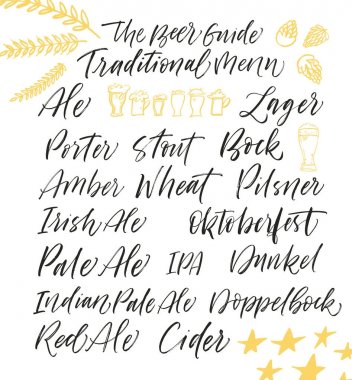 The Beer Guide
Traditional Menu
Ale Lager
Porter Stout Bock
Amber Wheat Pilsner
Irish Ale Oktoberfest
Pale Ale IPA Dunkel
Indian Pale Ale Doppelbock
Red Ale Cider